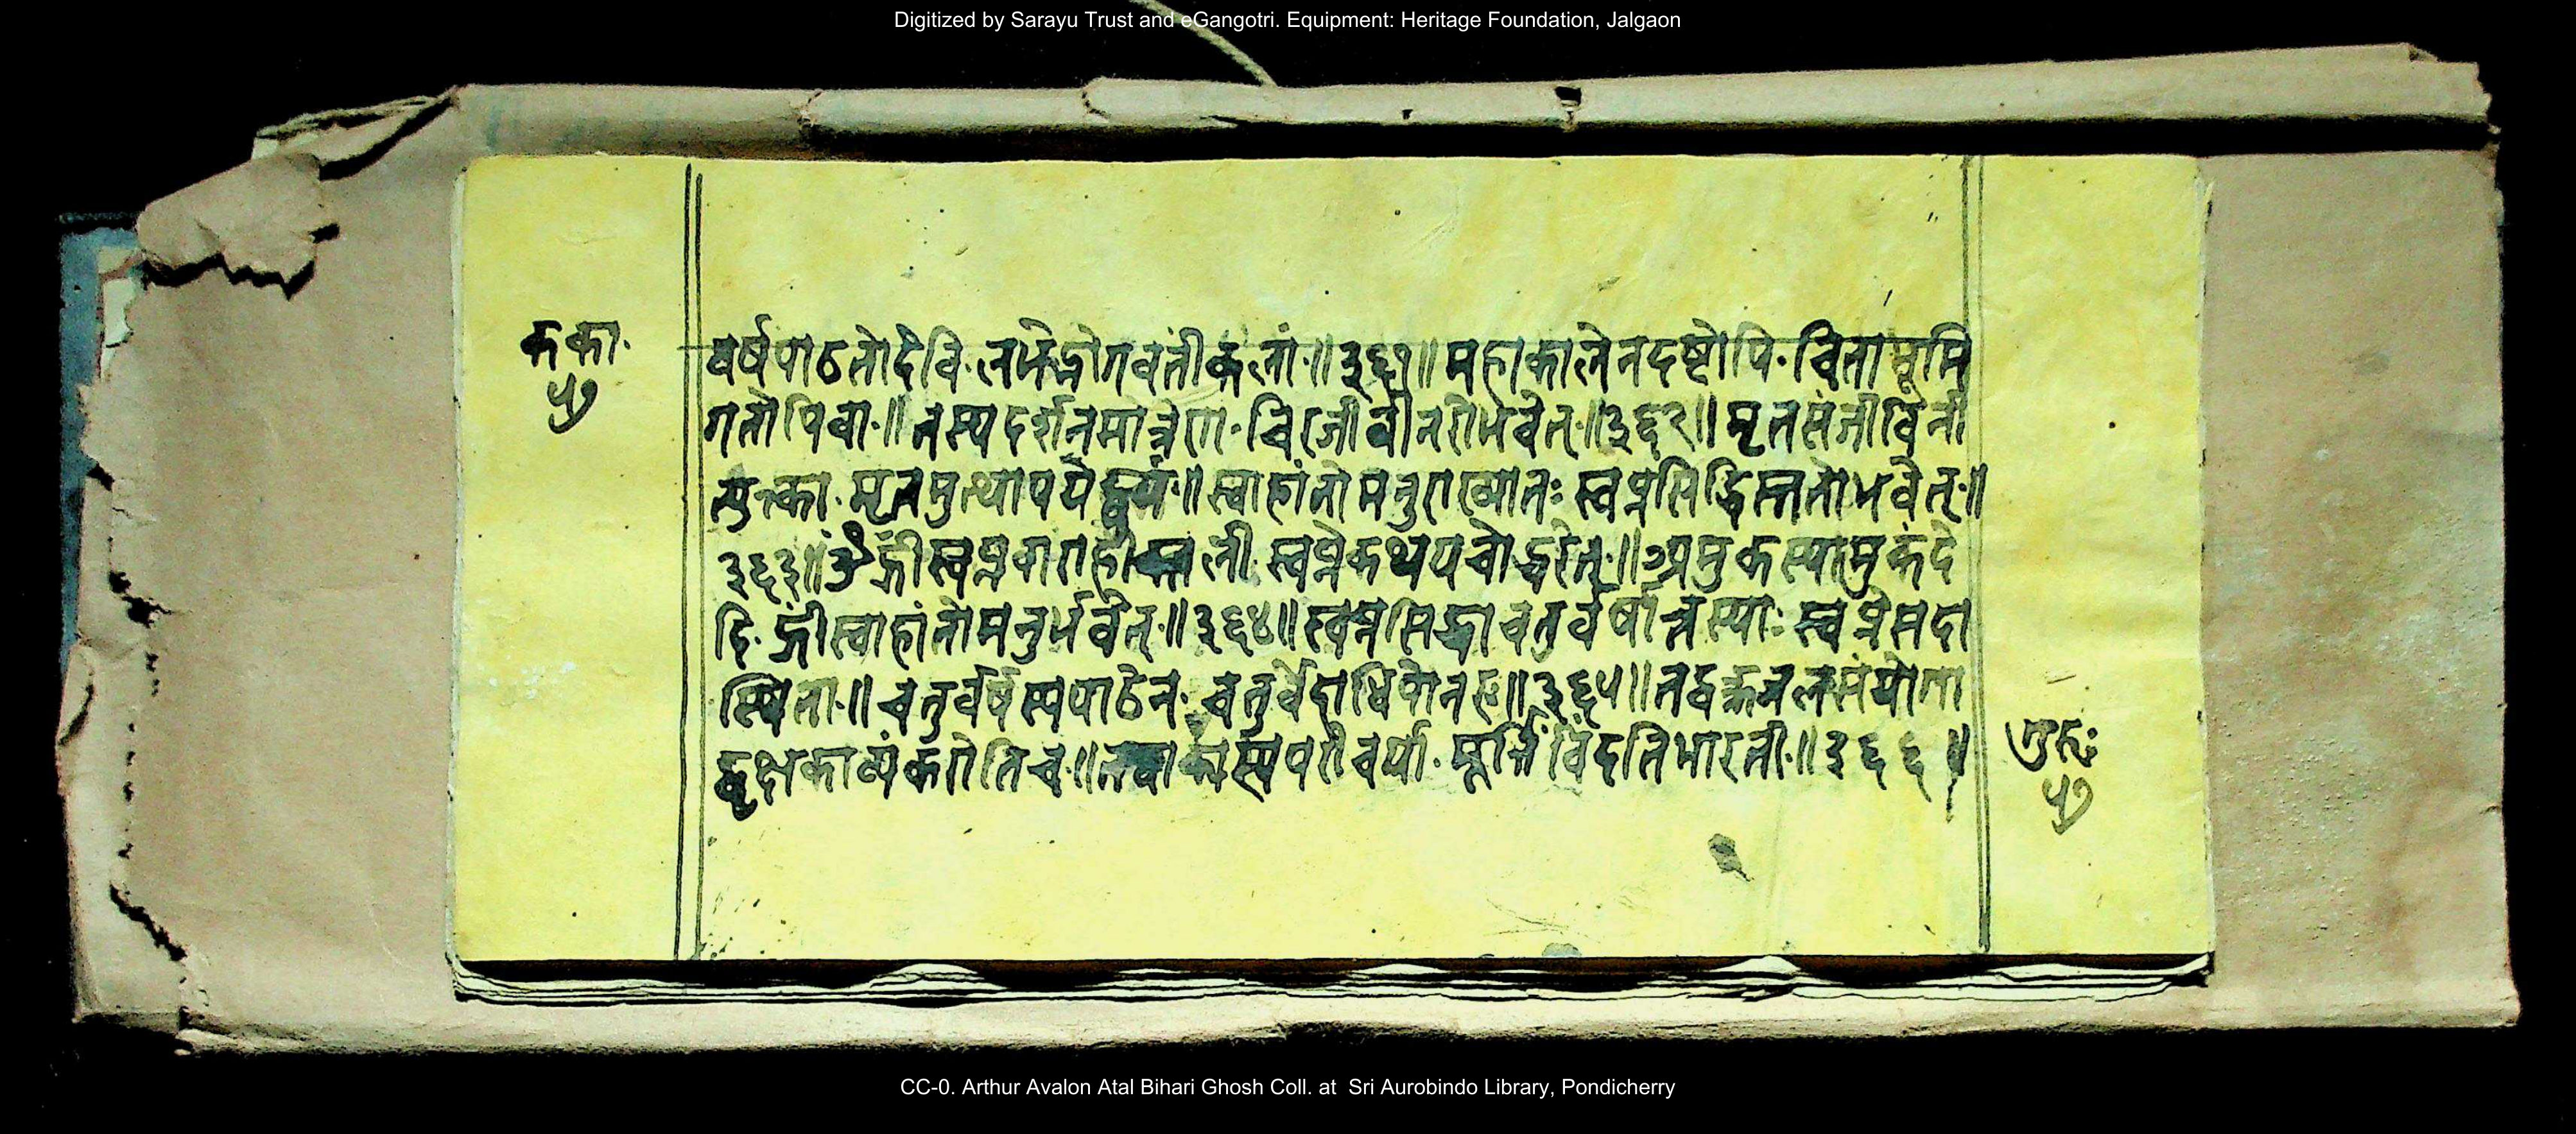 Digitized by Sarayu Trust and eGangotri. Equipment: Heritage Foundation, Jalgaon
कका.
५७
वर्षपाठतोदेवि.लभेद्भोगवतींकलां.॥३६१॥महाकालेनदष्टोपि.चिताभूमि
गतोपिवा.॥तस्यदर्शनमात्रेण.चिरजीवीनरोभवेत्.॥३६२॥मृतसंजीविनी
त्युत्का.मृतमुत्थापयेद्ध्रुयं.॥स्वाहांतोमनुराख्यातः स्वप्नसिद्धिस्ततोभवेत्.॥
३६३॥ॐह्रींस्वप्नवाराही लीं.स्वप्नेकथयचोद्धरेत्.॥अमुकस्यामुकंदे
हि.ह्रींस्वाहांतोमनुर्भवेत्.॥३६४॥स्वप्नसिद्धाचतुर्वर्षात्तस्याः स्वप्नेसदा
स्थिता.॥चतुर्वर्षस्यपाठेन.चतुर्वेदाधिपोनरः॥३६५॥तद्धस्तजलसंयोगा
काव्यंकरोतिच.॥ परीचर्या.मूर्तिंविंदतिभारती.॥३६६॥
गुरुः
५७
CC-0. Arthur Avalon Atal Bihari Ghosh Coll. at Sri Aurobindo Library, Pondicherry